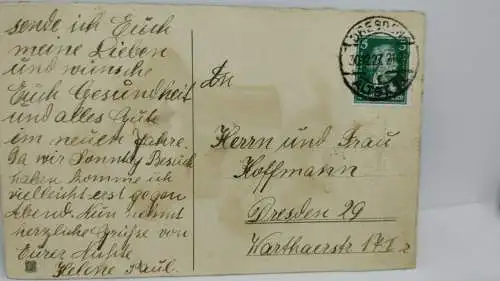 sende ich Euch
meine Lieben
und wünsche
Euch Gesundheit
und alles Gute
im neuen Jahre.
Da wir Sonntg Besuch
haben komme ich
vielleicht erst gegen
Abend. Nun nehmt
herzliche Grüße von
Eurer
Helene Paul.
An
Herrn und Frau
Hoffmann
Dresden 29
Warthaerstr
DRESDEN
30.12.27
5